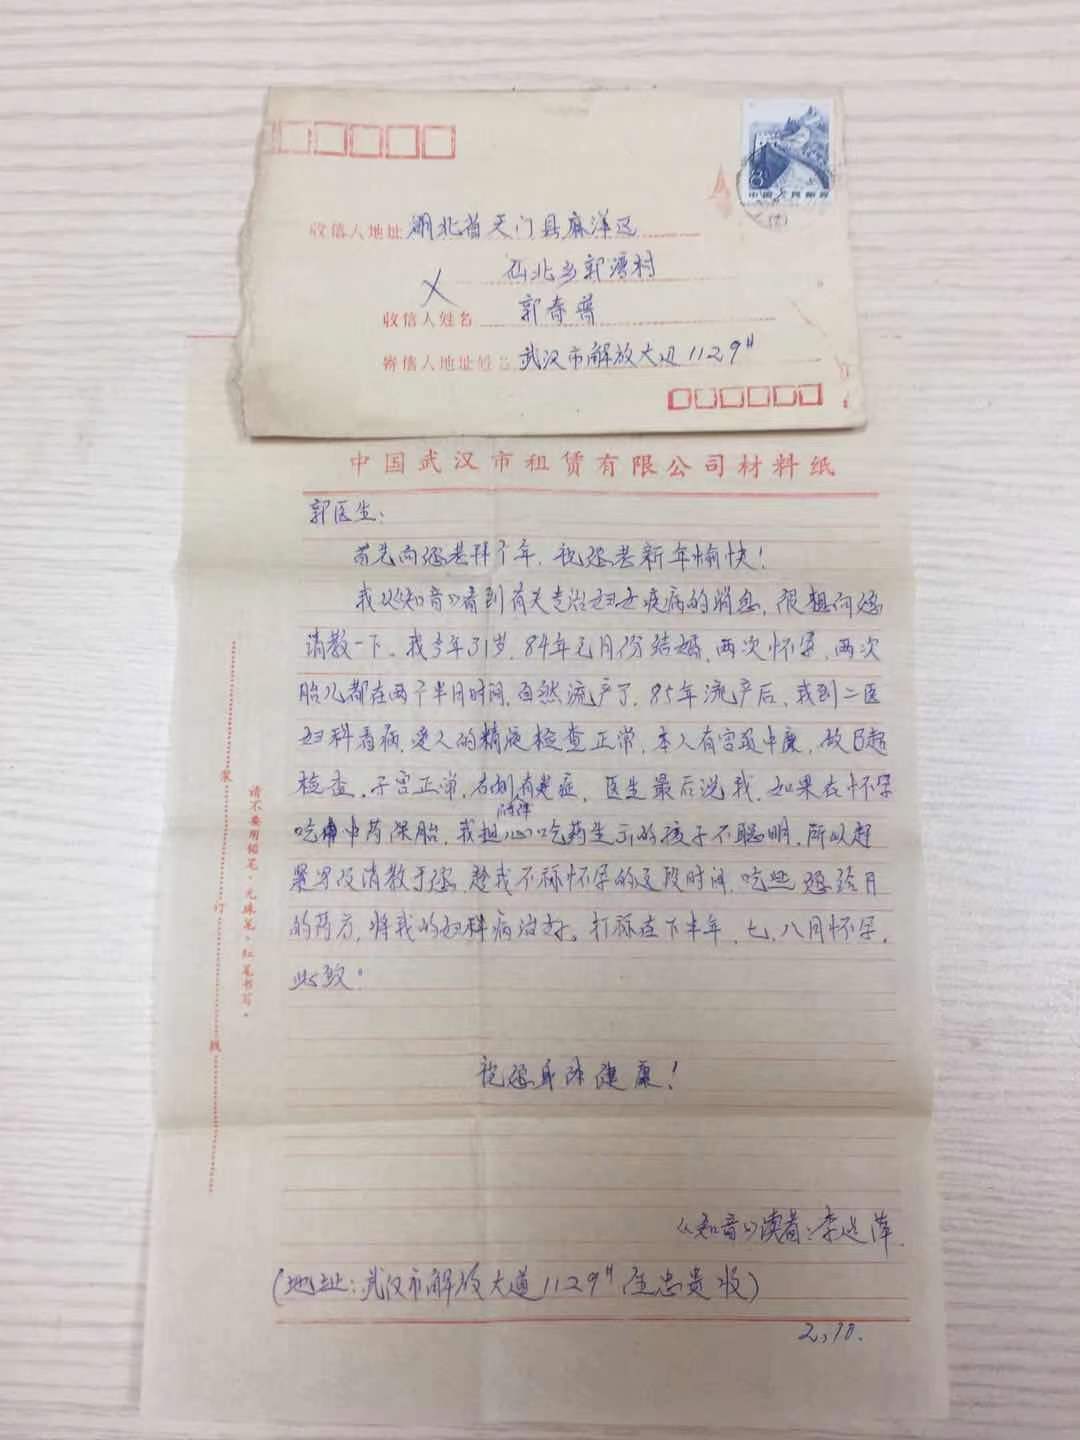 8
中国人民邮政
收信人地址 湖北省天门县麻洋区
西北乡郭湾村
收信人姓名 郭奇普
寄信人地址姓名 武汉市解放大道1129#
中国武汉市租赁有限公司材料纸
郭医生:
首先向您老拜个年,祝您老新年愉快!
我从《知音》看到有关专治妇女疾病的消息,很想向您
请教一下。我今年31岁,84年元月份结婚,两次怀孕,两次
胎儿都在两个半月时间,自然流产了,85年流产后,我到二医
妇科看病,爱人的精液检查正常,本人有宫颈中糜,做B超
检查,子宫正常,右侧有炎症,医生最后说我,如果在怀孕
吃中药保胎,我担心吃药生下的孩子不聪明,所以趁
请教于您,趁我不称怀孕的这段时间,吃些您给开
的药方,将我的妇科病治好。打称在下半年,七,八月怀孕,
此致!
祝您身体健康!
《知音》读者:李
(地址:武汉市解放大道1129# 忠贵收)
2,10.
请不要用铅笔、元珠笔、红笔书写。
装订线